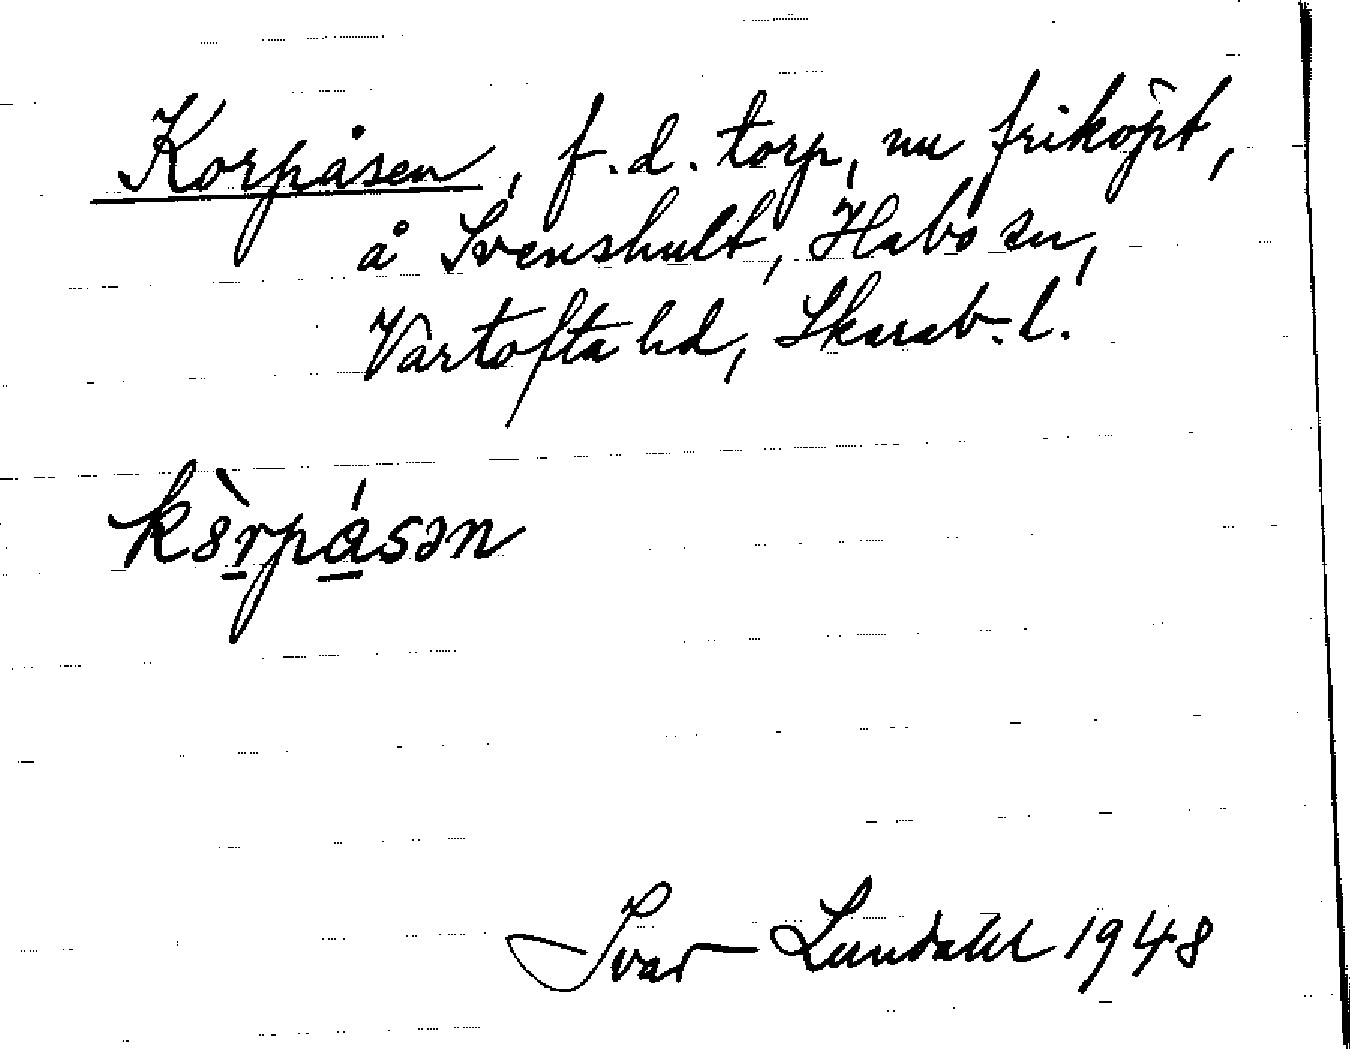 Korpåsen, f.d. torp, nu friköpt,
å Svenshult, Habo sn,
Vartofta hd, Skarab. l.
kòrpásən
Ivar Lundahl 1948